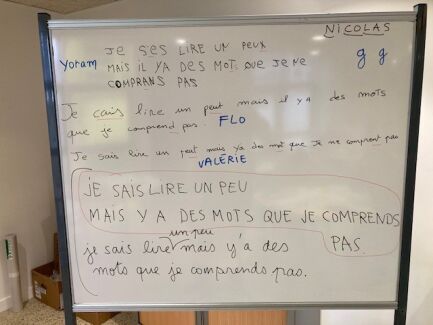 NICOLAS
g g
Yoram
JE SES LIRE UN PEUX
MAIS IL YA DES MOTS QUE JE NE
COMPRANS PAS
Je cais lire un peut mais il y a des mots
que je comprend pas. FLO
Je sais lire un peut mais ya des mot que je ne comprent pas
VALÉRIE
JE SAIS LIRE UN PEU
MAIS Y A DES MOTS QUE JE COMPRENDS
PAS.
un peu
je sais lire mais y'a des
mots que je comprends pas.